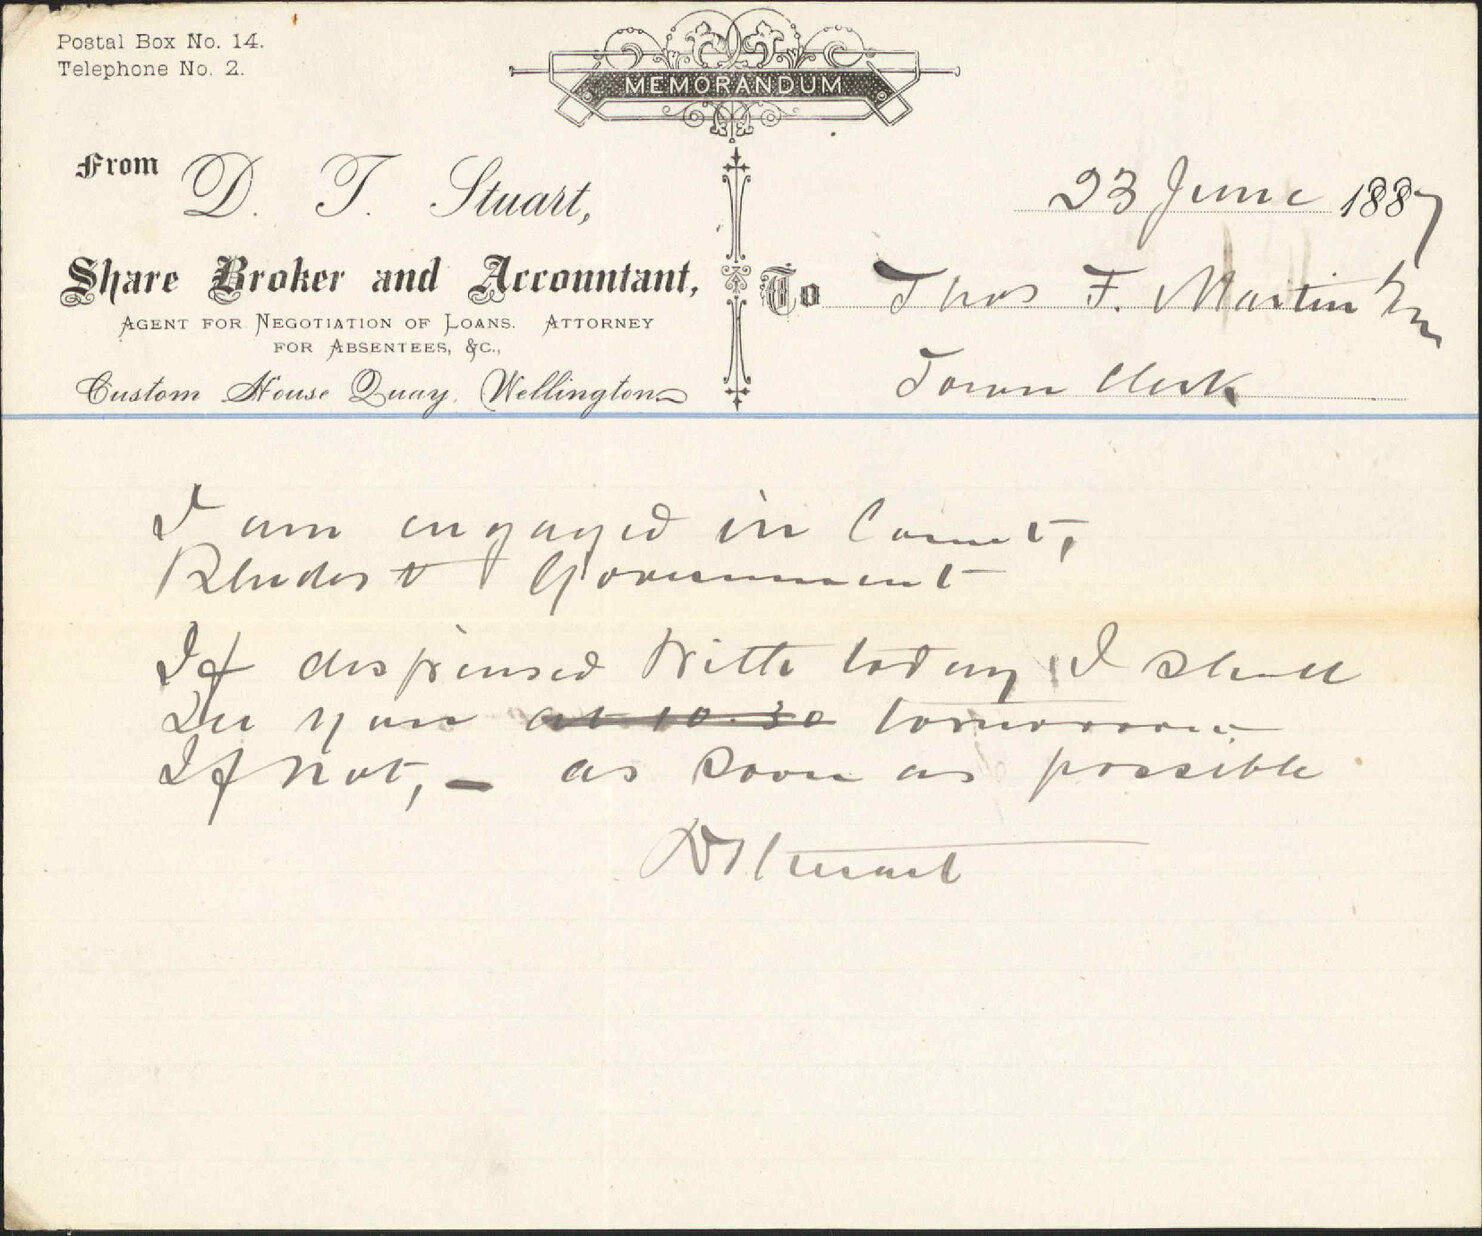 Postal Box No. 14.
Telephone No. 2.
MEMORANDUM
From D. T. Stuart,
Share Broker and Accountant,
AGENT FOR NEGOTIATION OF LOANS. ATTORNEY
FOR ABSENTEES, &C.,
Custom House Quay, Wellington
23 June 1887
To Thos F. Martin Esq
Town Clerk
I am engaged in Court,
Rhodes v Government
If dispensed with today I shall
See you at 10.30 tomorrow
If not, – as soon as possible
DTStuart